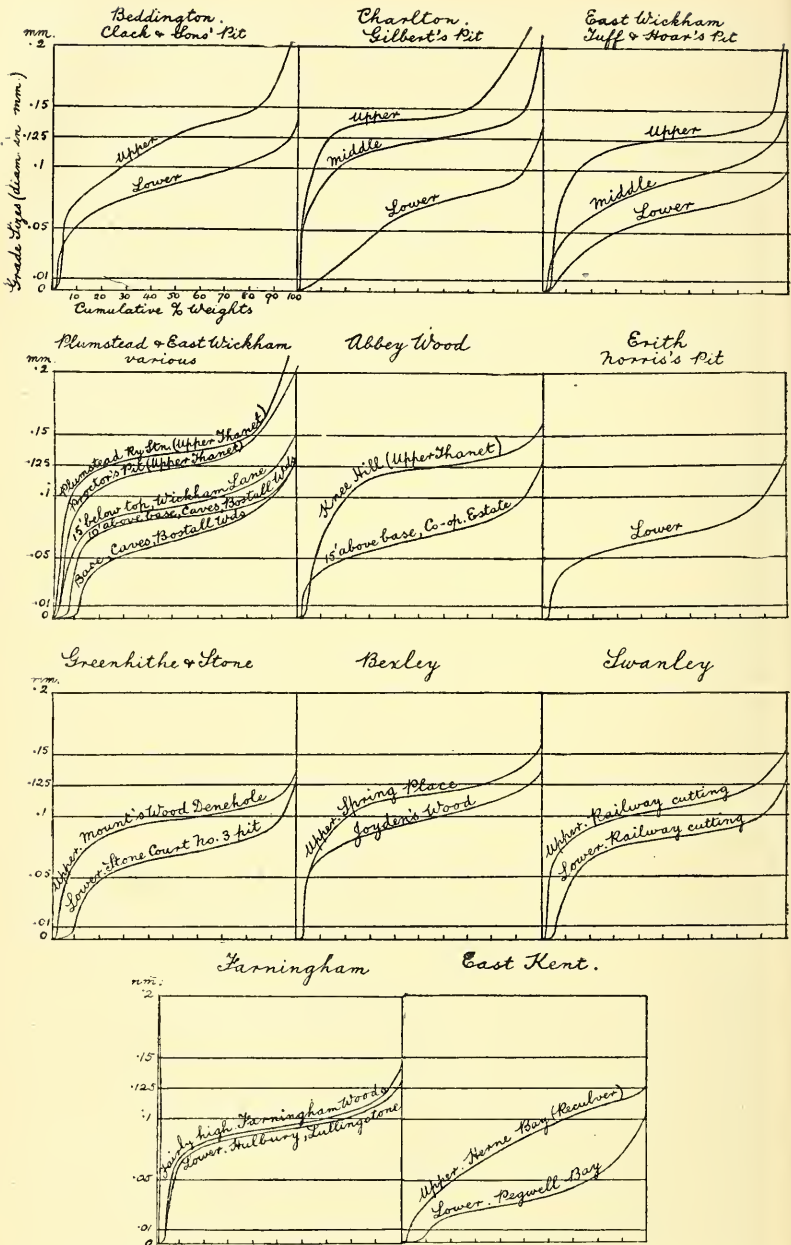 Beddington.
Clack & Sons' Pit
Charlton.
Gilbert's Pit
East Wickham
Tuff & Hoar's Pit
mm.
·2
·15
·125
·1
·05
·01
0
Grade Sizes (diam in mm.)
Upper
Lower
Upper
Middle
Lower
Upper
Middle
Lower
10 20 30 40 50 60 70 80 90 100
Cumulative % Weights
Plumstead & East Wickham
various
Abbey Wood
Erith
Norris's Pit
mm.
·2
·15
·125
·1
·05
·01
0
Plumstead Ry Stn. (Upper Thanet)
Proctor's Pit (Upper Thanet)
15' below top, Wickham Lane
10' above base, Caves, Bostall Wds
Base, Caves, Bostall Wds
Knee Hill (Upper Thanet)
15' above base, Co-op. Estate
Lower
Greenhithe & Stone
Bexley
Swanley
mm.
·2
·15
·125
·1
·05
·01
0
Upper. Mount's Wood Denehole
Lower. Stone Court No. 3 pit
Upper. Spring Place
Joyden's Wood
Upper. Railway cutting
Lower. Railway cutting
Farningham
East Kent.
mm.
·2
·15
·125
·1
·05
·01
0
Fairly high Farningham Woods
Lower. Hulbury, Lullingstone
Upper. Herne Bay (Reculver)
Lower. Pegwell Bay